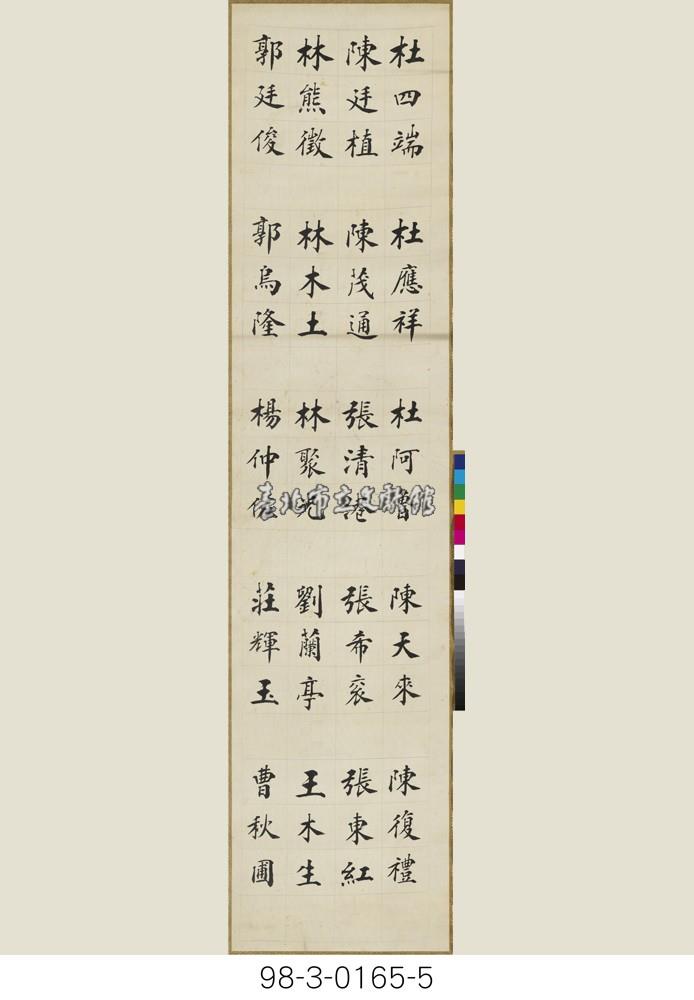 杜四端 杜應祥 杜阿 陳天來 陳復禮
陳廷植 陳茂通 張清港 張希袞 張東紅
林熊徵 林木土 林聚光 劉蘭亭 王木生
郭廷俊 郭烏隆 楊仲佐 莊輝玉 曹秋圃
臺北市立文獻館
98-3-0165-5